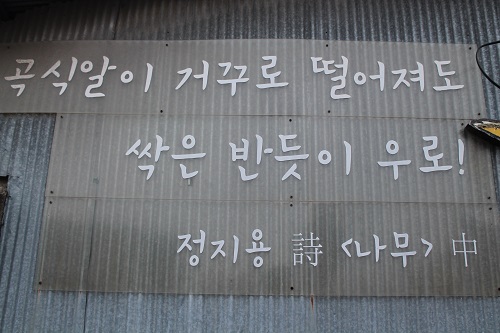 곡식알이 거꾸로 떨어져도
싹은 반듯이 우로!
정지용 詩 <나무> 中